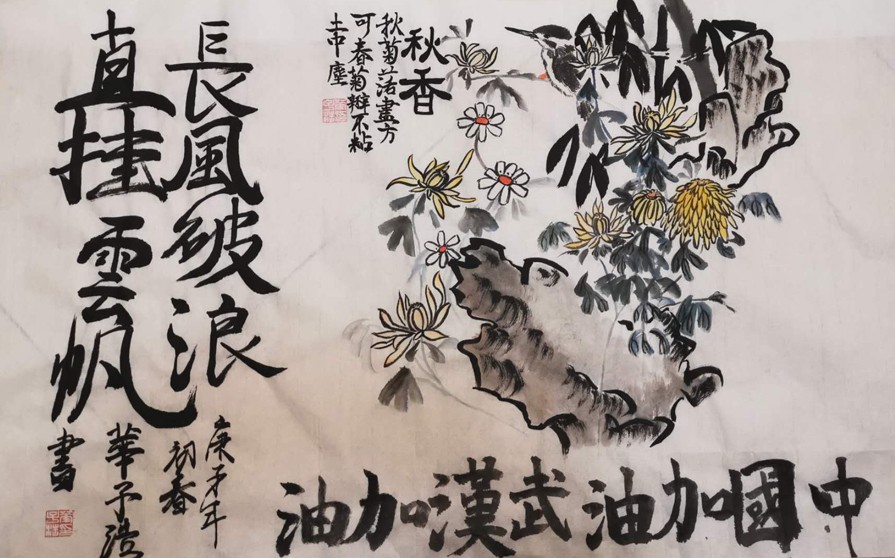 秋香
秋菊落盡方
可春菊瓣不粘
土中塵
長風破浪
直挂雲帆
庚子年
初春
華子
書
中國加油武漢加油